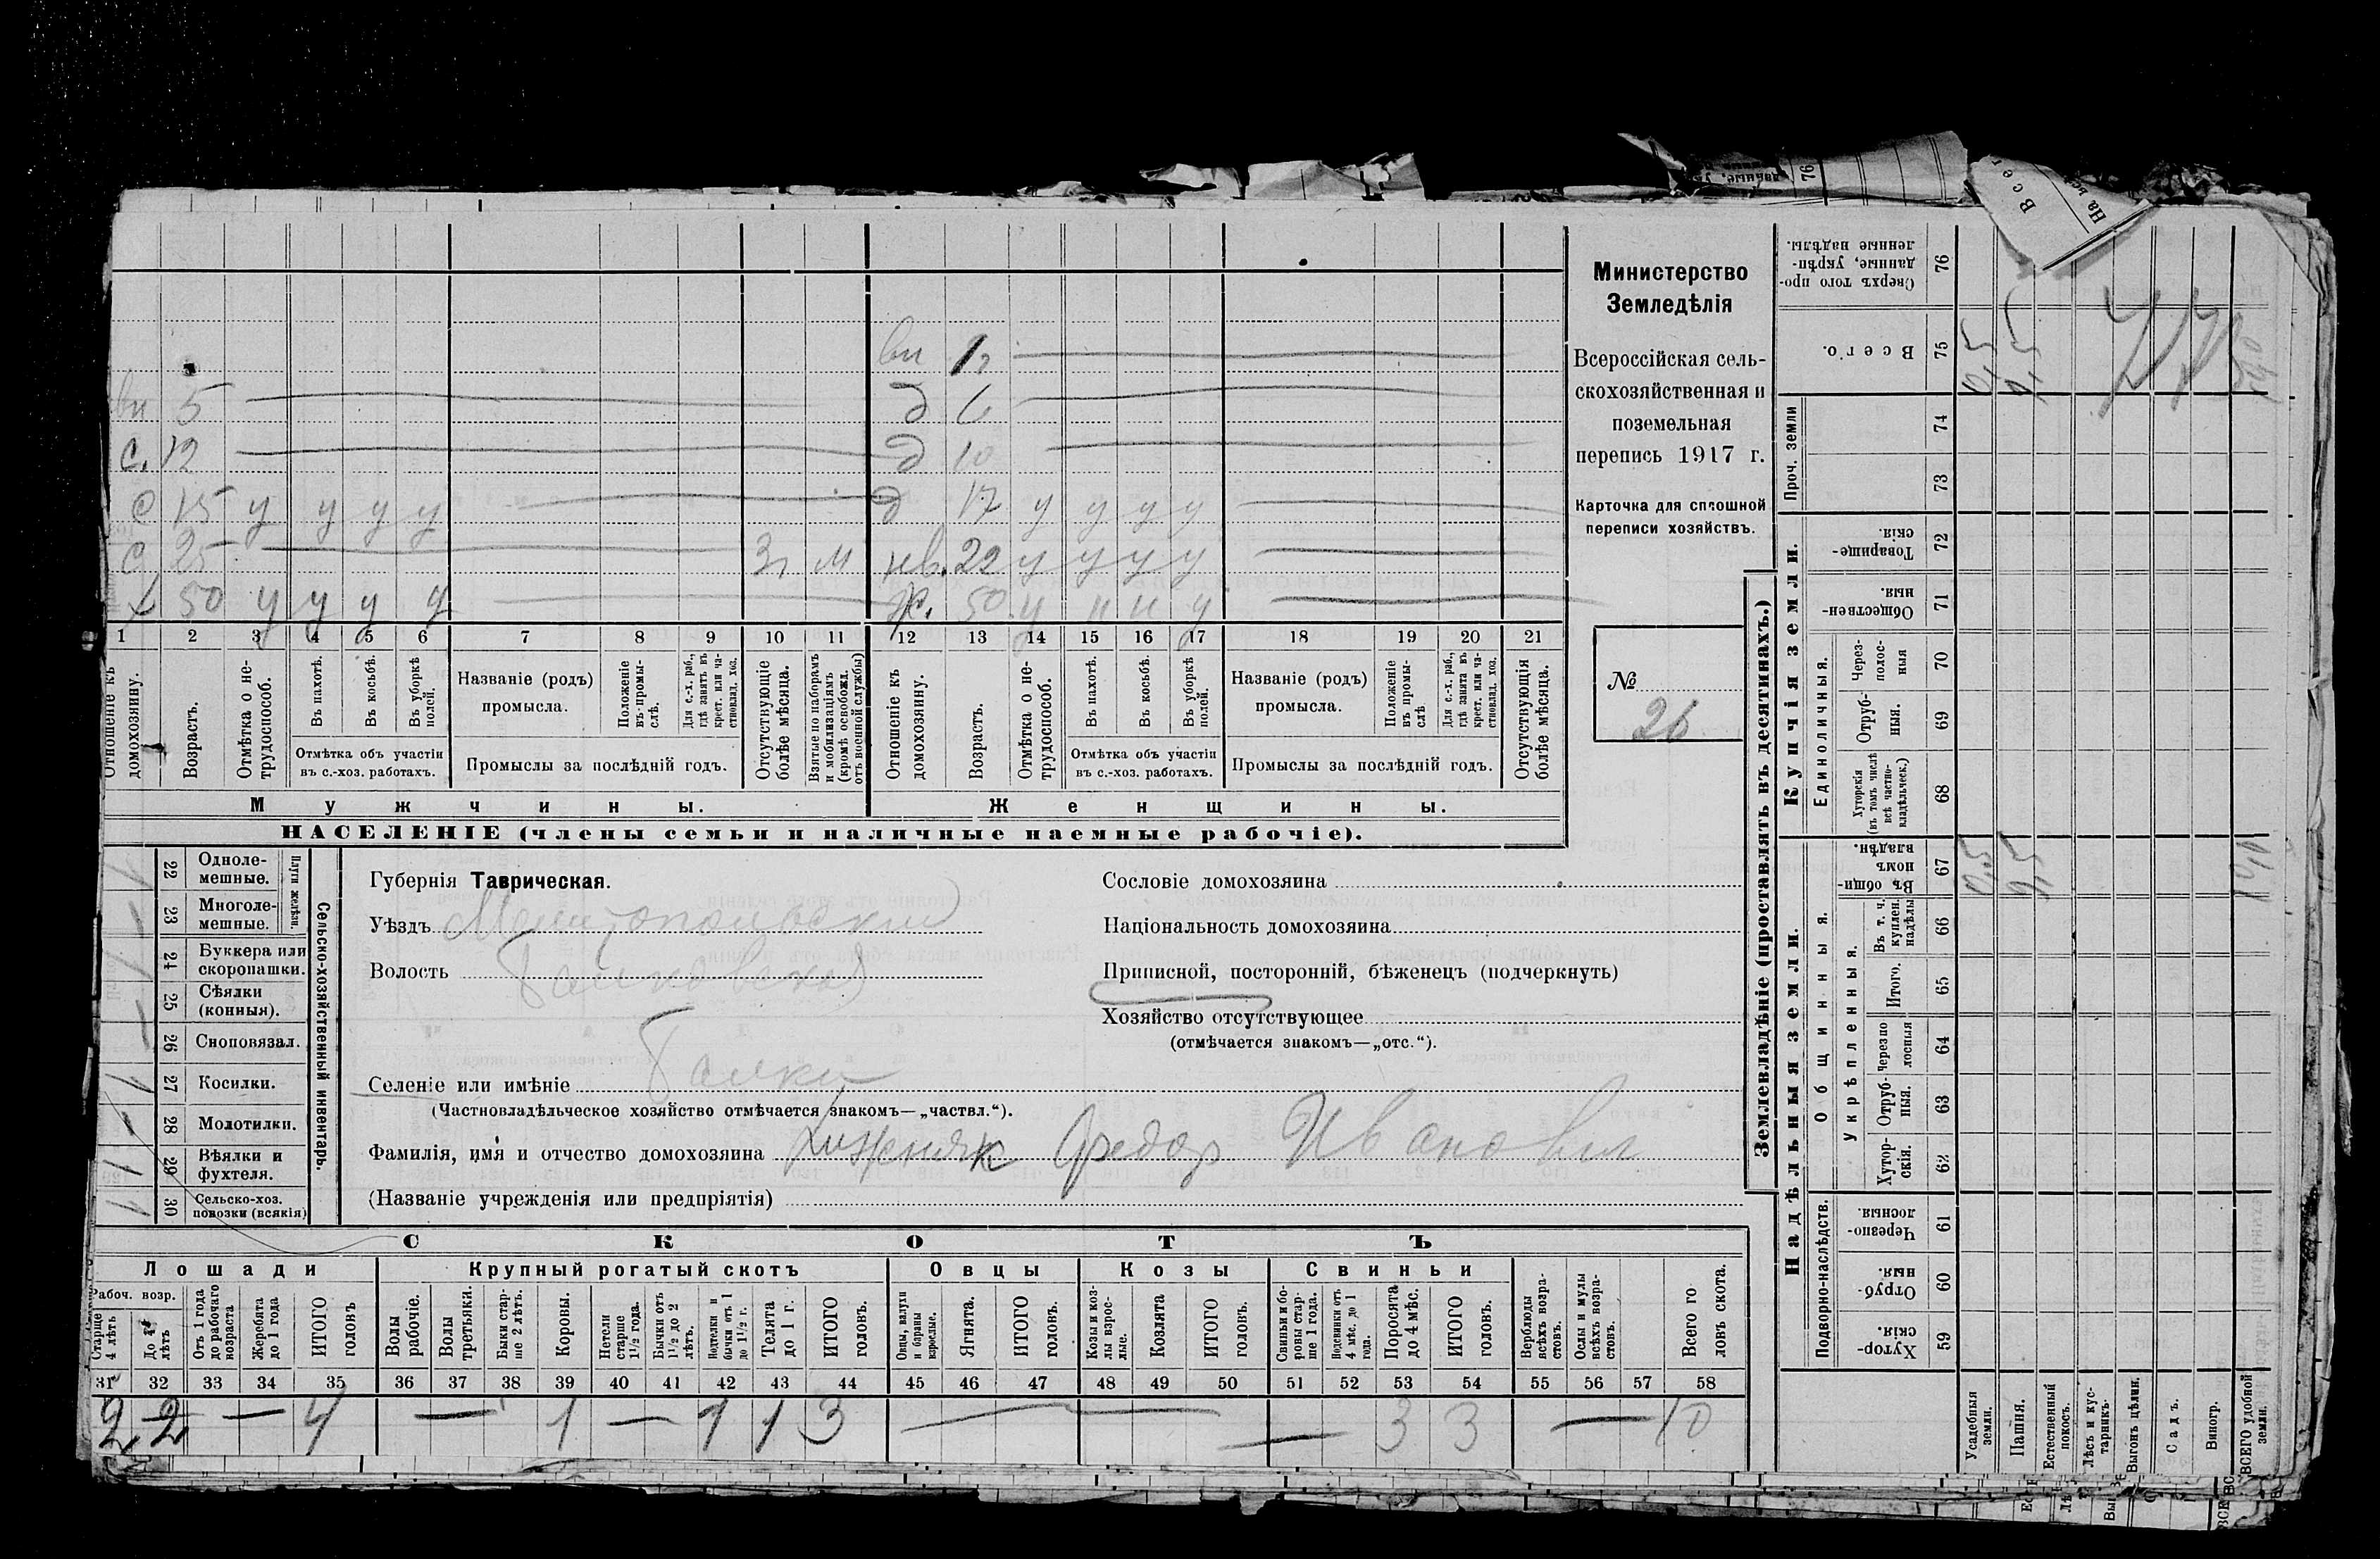 Министерство
Земледѣлія
Всероссійская сель-
скохозяйственная и
поземельная
перепись 1917 г.
Карточка для сплошной
переписи хозяйствъ.
№
26
вн 1
вн 5
д 6
с. 12
д 10
с 15 у у у у
д 17 у у у у
с 25 3 м
нев. 22 у у у у
х 50 у у у у
ж. 50 у и и у
1 2 3 4 5 6 7 8 9 10 11 12 13 14 15 16 17 18 19 20 21
Отношеніе къ домохозяину.
Возрастъ.
Отмѣтка о не-трудоспособ.
Въ пахотѣ.
Въ косьбѣ.
Въ уборкѣ полей.
Отмѣтка объ участіи
въ с.-хоз. работахъ.
Названіе (родъ)
промысла.
Положеніе въ промы-слѣ.
Для с.-х. раб., гдѣ занятъ въ крест. или ча-стновлад. хоз.
Промыслы за послѣдній годъ.
Отсутствующіе болѣе мѣсяца.
Взятые по наборамъ и мобилизаціямъ (кромѣ освобожд. отъ военной службы)
Отношеніе къ домохозяину.
Возрастъ.
Отмѣтка о не-трудоспособ.
Въ пахотѣ.
Въ косьбѣ.
Въ уборкѣ полей.
Отмѣтка объ участіи
въ с.-хоз. работахъ.
Названіе (родъ)
промысла.
Положеніе въ промы-слѣ
Для с.-х. раб., гдѣ занята въ крест. или ча-стновлад. хоз.
Промыслы за послѣдній годъ.
Отсутствующія болѣе мѣсяца.
Мужчины.
Женщины.
НАСЕЛЕНІЕ (члены семьи и наличные наемные рабочіе).
Сельско-хозяйственный инвентарь
Плуги желѣзн.
22 Одноле-мешные. 1
23 Многоле-мешные. —
24 Буккера или скоропашки. 1
25 Сѣялки (конныя). —
26 Сноповязал. —
27 Косилки. 1
28 Молотилки. —
29 Вѣялки и фухтеля. 1
30 Сельско-хоз. повозки (всякія) 1
Губернія Таврическая.
Уѣздъ Мелитопольскій
Волость Балковская
Селеніе или имѣніе Балки
(Частновладѣльческое хозяйство отмѣчается знакомъ—„частвл.“).
Фамилія, имя и отчество домохозяина Хижняк Федор Иванович
(Названіе учрежденія или предпріятія)
Сословіе домохозяина
Національность домохозяина
Приписной, посторонній, бѣженецъ (подчеркнуть)
Хозяйство отсутствующее
(отмѣчается знакомъ—„отс.“).
СКОТЪ
Лошади
Крупный рогатый скотъ
Овцы
Козы
Свиньи
Рабоч. возр.
Старше 4 лѣтъ
До 4 лѣтъ
Отъ 1 года до рабочаго возраста
Жеребята до 1 года
ИТОГО головъ
Волы рабочіе.
Волы третьяки.
Быки стар-ше 2 лѣтъ.
Коровы.
Нетели старше 1½ года.
Бычки отъ 1½ до 2 лѣтъ.
Подтелки и бычки отъ 1 до 1½ г.
Телята до 1 г.
ИТОГО головъ.
Овцы, валухи и бараны взрослые.
Ягнята.
ИТОГО головъ.
Козы и коз-лы взрос-лые.
Козлята
ИТОГО головъ.
Свиньи и бо-ровы стар-ше 1 года.
Подсвинки отъ 4 мѣс. до 1 года.
Поросята до 4 мѣс.
ИТОГО головъ.
Верблюды всѣхъ возра-стовъ.
Ослы и мулы всѣхъ возра-стовъ.
Всего го-ловъ скота.
31 32 33 34 35 36 37 38 39 40 41 42 43 44 45 46 47 48 49 50 51 52 53 54 55 56 57 58
2 2 — 4 — 1 — 1 1 3 — — 3 3 — 10
Землевладѣніе (проставлять въ десятинахъ.)
Надѣльныя земли.
Купчія земли.
Проч. земли
Подворно-наслѣдств.
Общинныя.
Укрѣпленныя.
Единоличныя.
Хутор-скія. 59
Отруб-ныя. 60
Черезпо-лосныя. 61
Хутор-скія. 62
Отруб-ныя. 63
Черезпо лосныя 64
Итого. 65
Въ т. ч. куплен. надѣлы 66
Въ общин-номъ владѣн. 67
Хуторскія (въ томъ числѣ всѣ частно-владѣльческ.) 68
Отруб-ныя. 69
Через-полос-ныя 70
Обществен-ныя. 71
Товарище-скія. 72
73
74
Всего. 75
Сверхъ того про-данные, укрѣп-ленные надѣлы. 76
Усадебныя земли.
Пашня.
Естественный покосъ.
Лѣсъ и кус-тарникъ.
Выгонъ цѣлин.
Садъ.
Виногр.
ВСЕГО удобной земли.
0,5
0,5
76
Всег
На